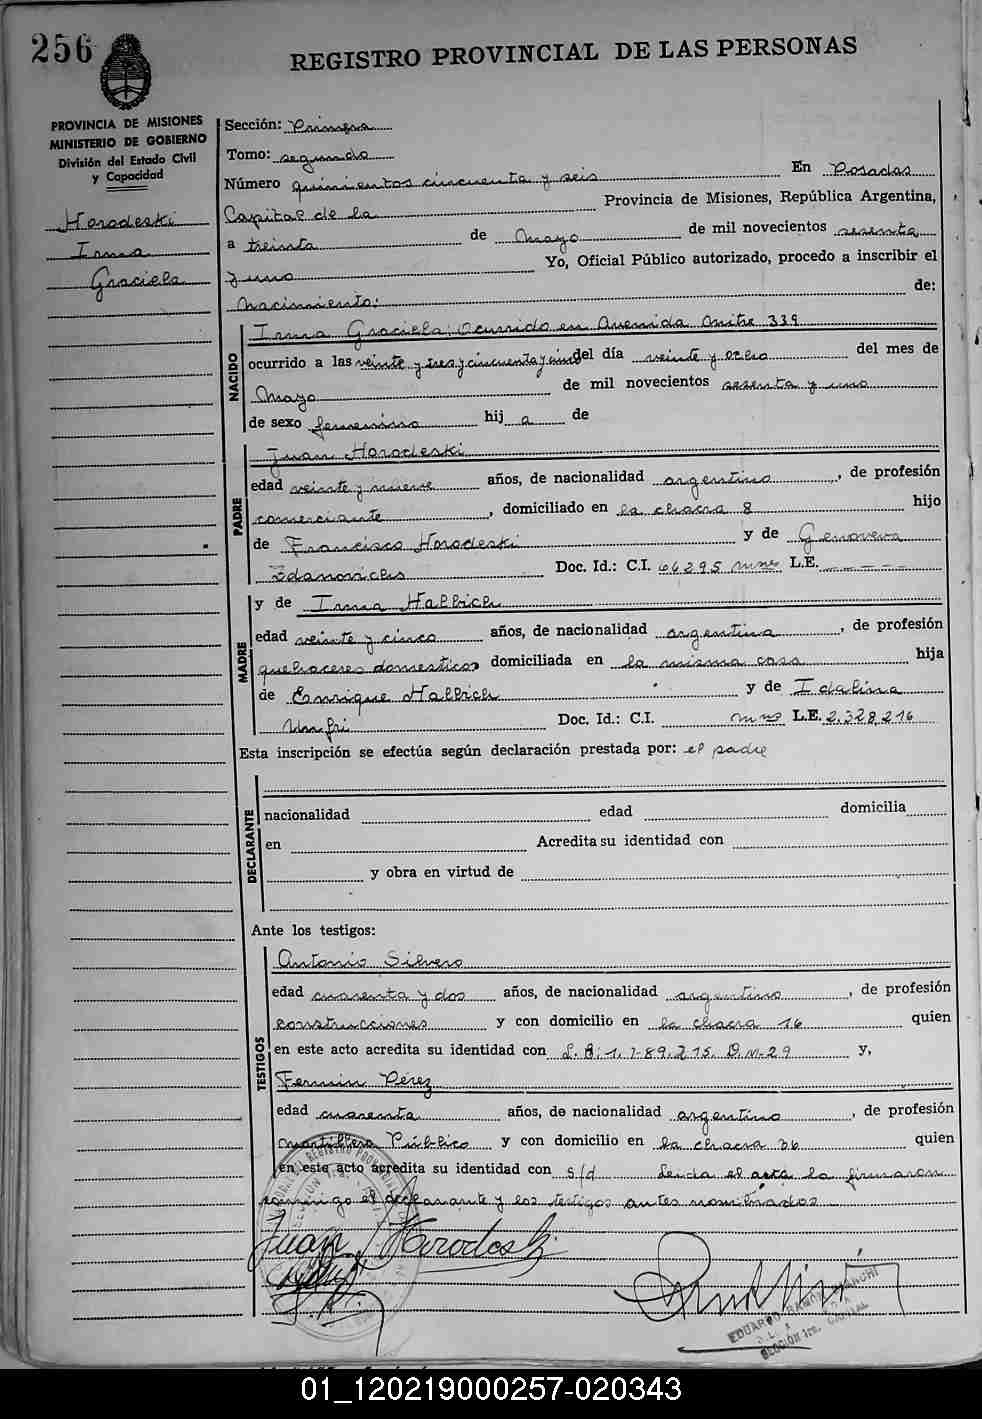 256
REGISTRO PROVINCIAL DE LAS PERSONAS
PROVINCIA DE MISIONES
MINISTERIO DE GOBIERNO
División del Estado Civil
y Capacidad
Horodeski
Irma
Graciela
Sección: Primera
Tomo: segundo
Número quinientos cincuenta y seis En Posadas
Capital de la Provincia de Misiones, República Argentina,
a treinta de Mayo de mil novecientos sesenta
y uno Yo, Oficial Público autorizado, procedo a inscribir el
nacimiento: de:
NACIDO
Irma Graciela; Ocurrido en Avenida Mitre 339
ocurrido a las veinte y tres y cincuenta y cinco del día veinte y ocho del mes de
Mayo de mil novecientos sesenta y uno
de sexo femenino hij a de
PADRE
Juan Horodeski
edad veinte y nueve años, de nacionalidad argentino, de profesión
comerciante, domiciliado en la chacra 8 hijo
de Francisco Horodeski y de Genoveva
Zdanovichs Doc. Id.: C.I. 66295 mnes L.E. - - - - -
MADRE
y de Irma Halbich
edad veinte y cinco años, de nacionalidad argentina, de profesión
quehaceres domesticos domiciliada en la misma casa hija
de Enrique Halbich y de Idalina
Umfri Doc. Id.: C.I. mns L.E. 2.328.216
Esta inscripción se efectúa según declaración prestada por: el padre
DECLARANTE
nacionalidad edad domicilia
en Acredita su identidad con
y obra en virtud de
Ante los testigos:
TESTIGOS
Antonio Silvero
edad cuarenta y dos años, de nacionalidad argentino, de profesión
construcciones y con domicilio en la chacra 16 quien
en este acto acredita su identidad con L. E: 1.789.215. D.M. 29 y,
Fermin Pérez
edad cuarenta años, de nacionalidad argentino, de profesión
martillero Público y con domicilio en la chacra 36 quien
en este acto acredita su identidad con s/d Leida el acta la firmaron
conmigo el declarante y los testigos antes nombrados
Juan Horodeski
EDUARDO RAMON BIANCHI
SECCIÓN 1ra. CAPITAL
01_120219000257-020343